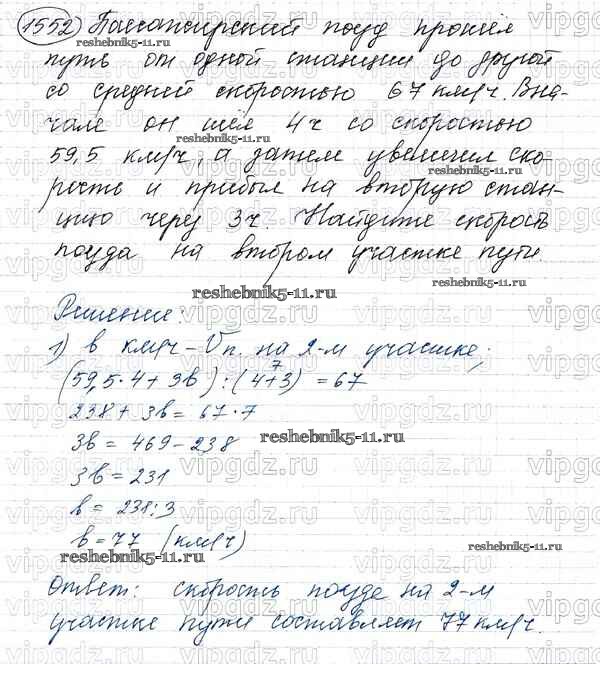 1552 Пассажирский поезд прошёл
reshebnik5-11.ru
путь от одной станции до другой
со средней скоростью 67 км/ч. Вна-
чале он шёл 4ч со скоростью
reshebnik5-11.ru
59,5 км/ч, а затем увеличил ско-
reshebnik5-11.ru
рость и прибыл на вторую стан-
цию через 3ч. Найдите скорость
поезда на втором участке пути
reshebnik5-11.ru
Решение:
1) в км/ч – Vп. на 2-м участке;
7
(59,5·4 + 3в) : (4+3) = 67
238 + 3в = 67·7
3в = 469 – 238
reshebnik5-11.ru
3в = 231
в = 231:3
в = 77 (км/ч)
reshebnik5-11.ru
reshebnik5-11.ru
Ответ: скорость поезда на 2-м
участке пути составляет 77 км/ч.
vipgdz.ru